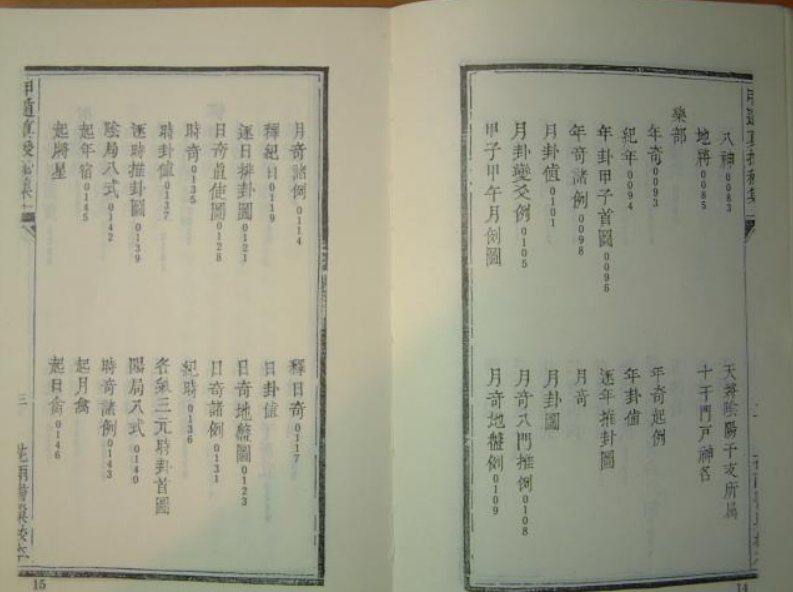 八神0083 天將陰陽干支所屬
地將0085 十干門戶神名
樂部
年奇0093 年奇起例
紀年0094 年卦值
年卦甲子首圖0096 逐年推卦圖
年奇諸例0098 月奇
月卦值0101 月卦圖
月卦變爻例0105 月奇八門推例0108
甲子甲午月例圖 月奇地盤例0109
14
月奇諸例0114 釋日奇0117
釋紀日0119 日卦值
逐日推卦圖0121 日奇地盤圖0123
日奇值使圖0128 日奇諸例0131
時奇0135 紀時0136
時卦值0137 各氣三元時卦首圖
逐時推卦圖0139 陽局八式0140
陰局八式0142 時奇諸例0143
起年宿0145 起月禽
起將星 起日禽0146
三
15